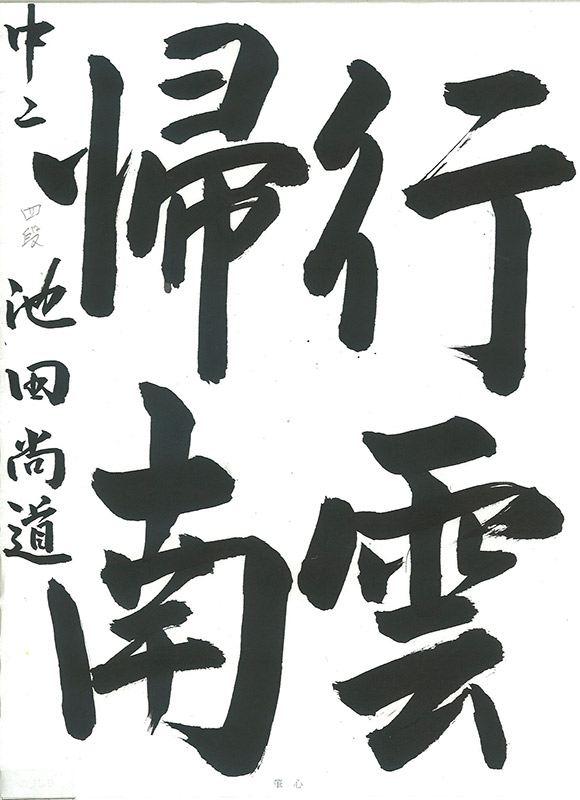 行雲
帰南
中二 四段 池田尚道
心筆